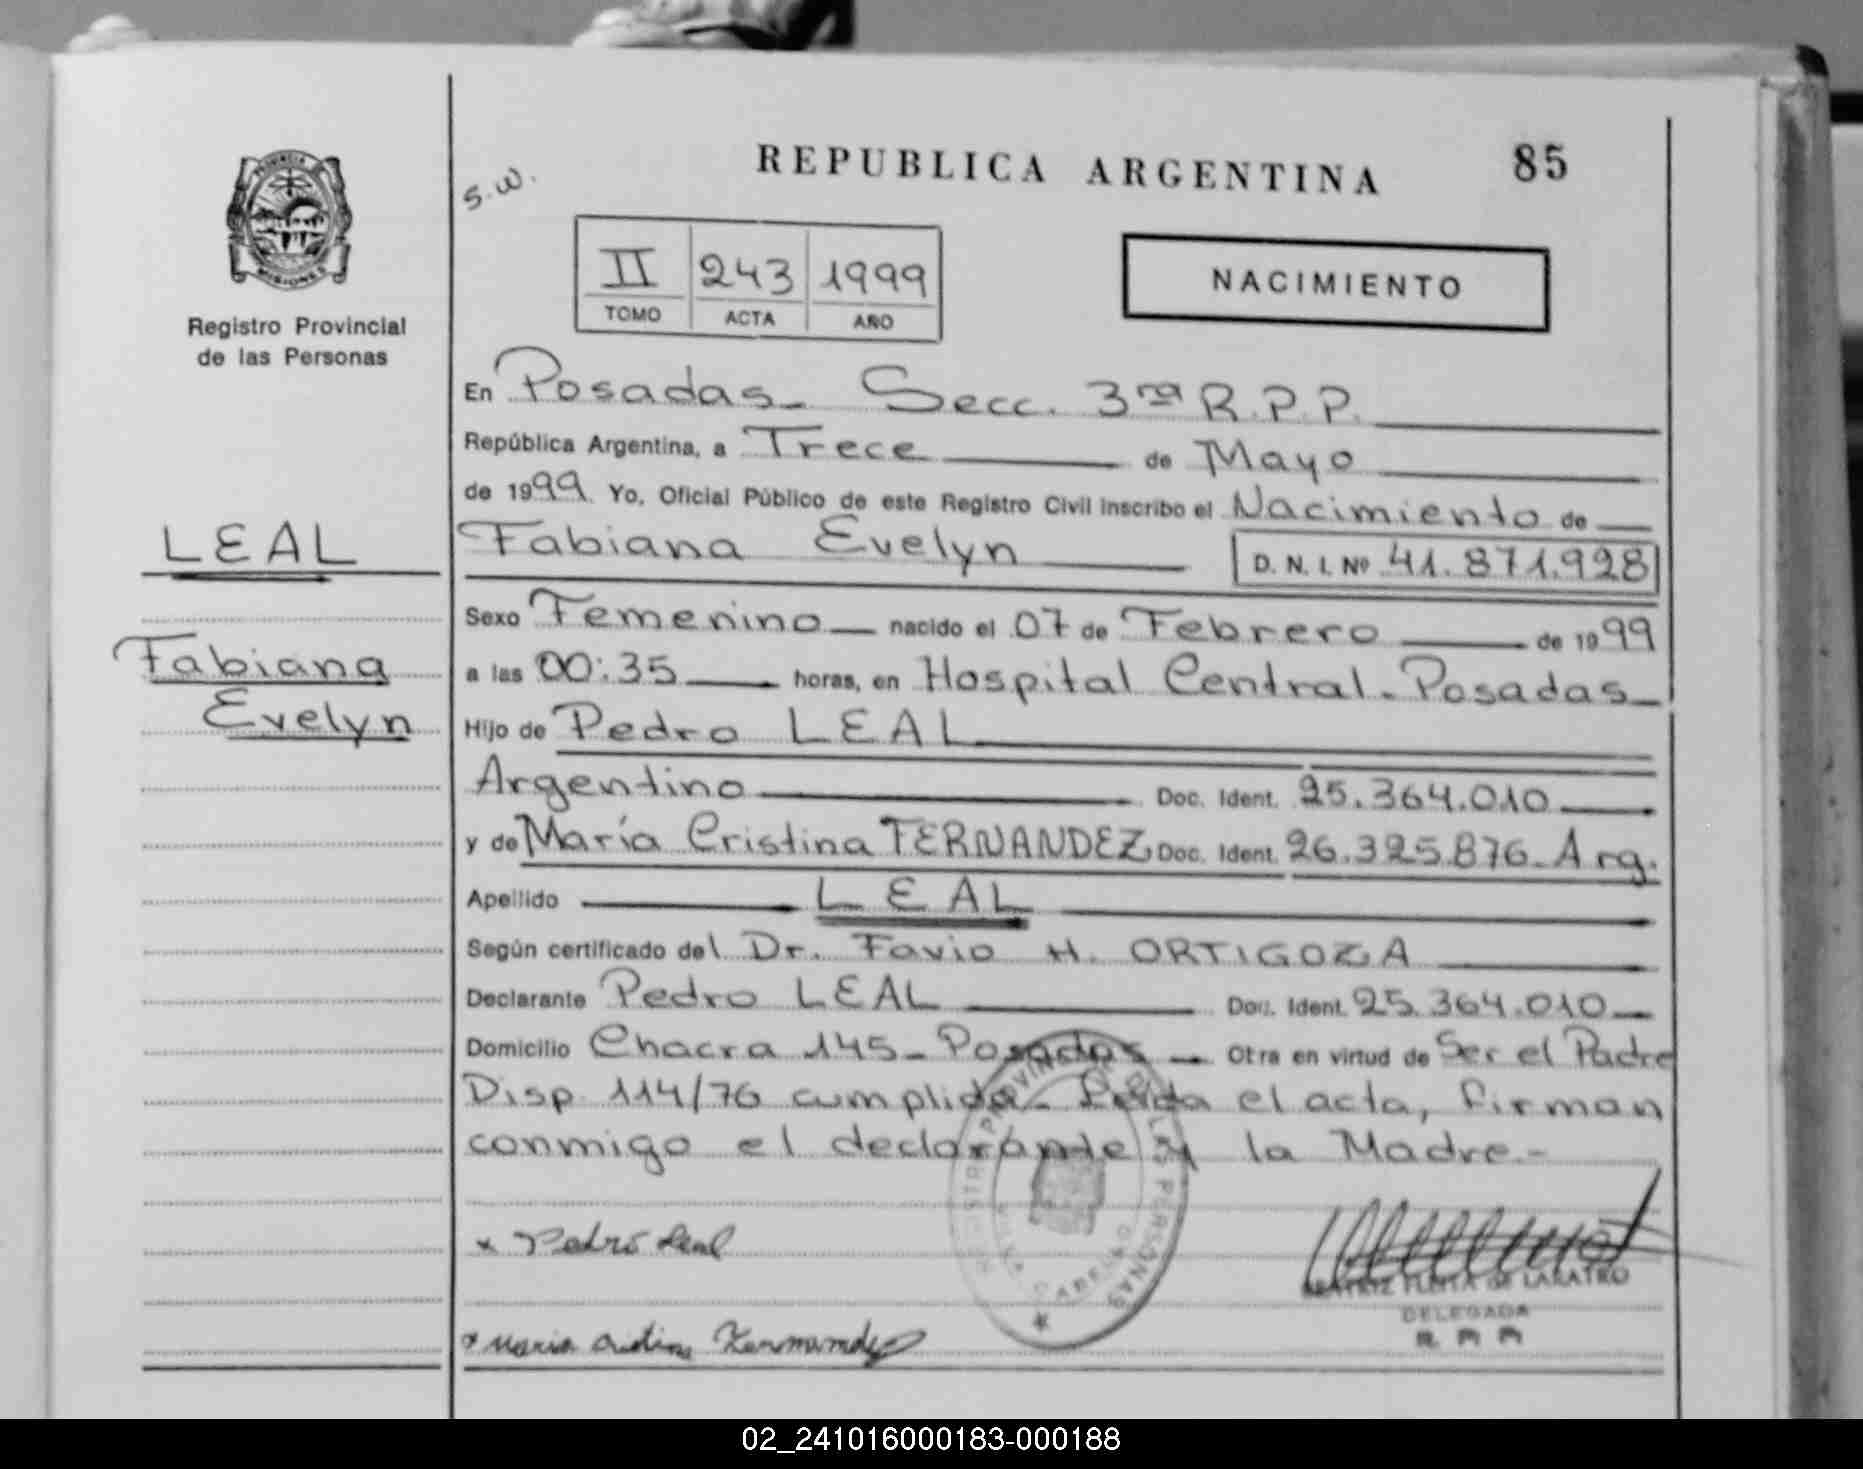 REPUBLICA ARGENTINA 85
S.W.
PROVINCIA
MISIONES
Registro Provincial
de las Personas
II 243 1999
TOMO ACTA AÑO
NACIMIENTO
En Posadas_ Secc. 3ra R.P.P.
República Argentina, a Trece de Mayo
de 1999 Yo, Oficial Público de este Registro Civil inscribo el Nacimiento de
LEAL
Fabiana Evelyn D. N. I. Nº 41.871.928
Sexo Femenino nacido el 07 de Febrero de 1999
Fabiana
Evelyn
a las 00:35 horas, en Hospital Central_Posadas_
Hijo de Pedro LEAL
Argentino Doc. Ident. 25.364.010
y de María Cristina FERNANDEZ Doc. Ident. 26.325.876_Arg.
Apellido LEAL
Según certificado del Dr. Favio H. ORTIGOZA
Declarante Pedro LEAL Doc. Ident. 25.364.010
Domicilio Chacra 145_ Posadas Otra en virtud de Ser el Padre
Disp. 114/76 cumplida_ Leída el acta, firman
conmigo el declarante y la Madre.-
x Pedro Leal
x Maria Cristina Fernandez
BEATRIZ DE LARATRO
DELEGADA
PERSONAS
02_241016000183-000188